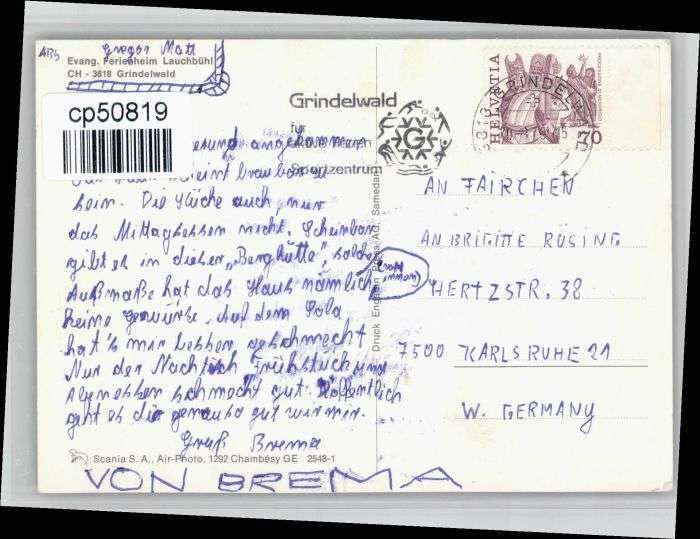 Gregor Matt
Evang. Ferienheim Lauchbühl
CH - 3818 Grindelwald
cp50819
Grindelwald
für
Sportzentrum
HELVETIA
GRINDELW
70
gesund angekommen
sein. Die Küche auch, nur
das Mittagessen nicht. Scheinbar
gibt es in dieser „Berghütte", solche
Außmaße hat das Haus nämlich
keine Gewürze. Auf dem Sola
hat's mir besser geschmeckt
Nur der Nachtisch Frühstück und
Abenessen schmeckt gut. Hoffentlich
geht es dir genauso gut wie mir.
Gruß Brema
VON BREMA
Druck Engadin Press AG, Samedan
Scania S. A., Air-Photo, 1292 Chambésy GE 2548-1
AN FAIRCHEN
AN BRIGITTE RÖSING
HERTZSTR. 38
7500 KARLSRUHE 21
W. GERMANY